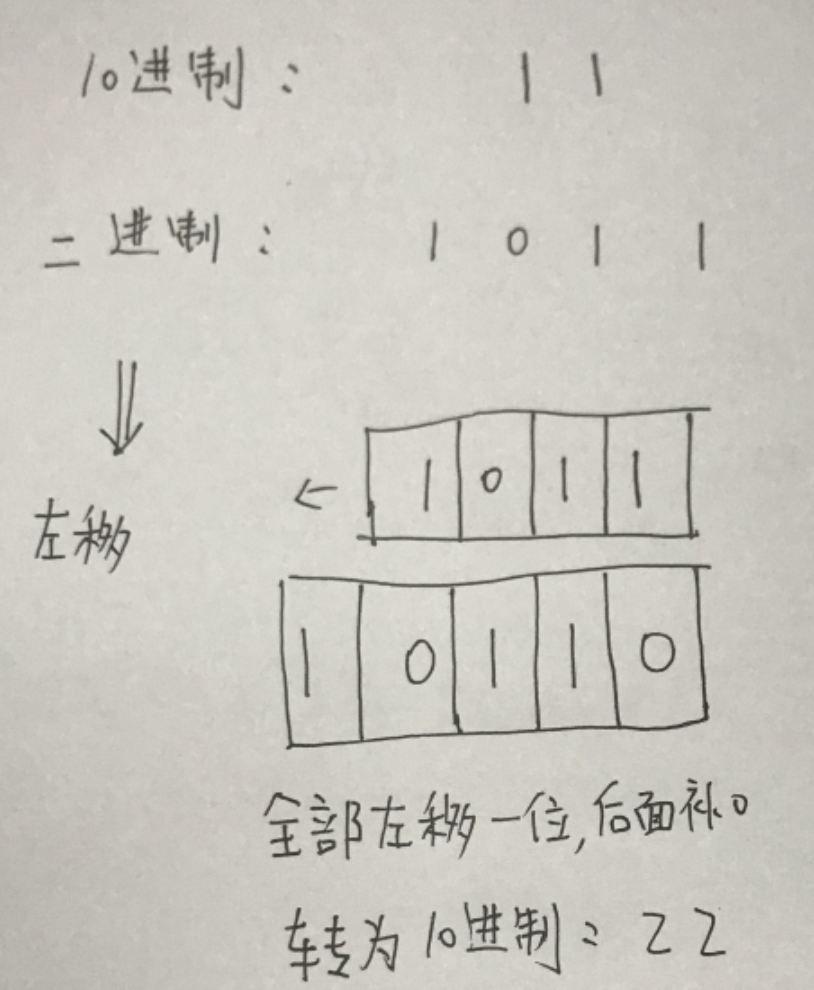 10进制: 11
二进制: 1 0 1 1
1 0 1 1
左移
1 0 1 1 0
全部左移一位,后面补0
转为10进制: 22